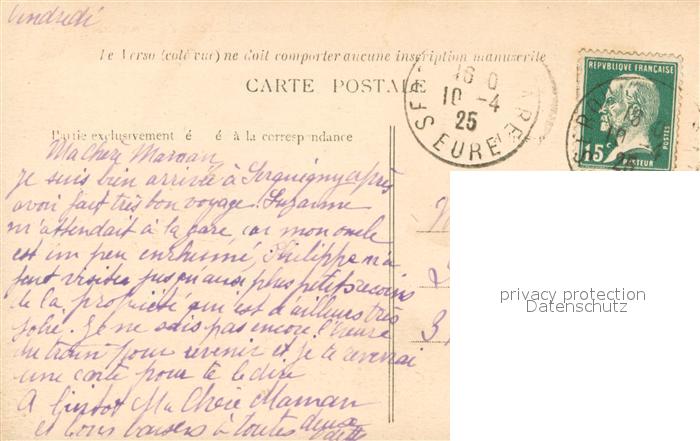 Vendredi
Le Verso (coté vue) ne doit comporter aucune inscription manuscrite
CARTE POSTALE
Partie exclusivement é é à la correspondance
16 0
10 -4
25
EURE
REPUBLIQUE FRANÇAISE
15c
POSTES
PASTEUR
Ma chère Maman
Je suis bien arrivée à Serquigny après
avoir fait très bon voyage. Suzanne
m'attendait à la gare, car mon oncle
est un peu enrhumé, Philippe m'a
fait visiter jusqu'aux plus petits recoins
de la propriété qui est d'ailleurs très
jolie. Je ne sais pas encore l'heure
du train pour revenir et je t'enverrai
une carte pour te le dire
A bientôt Ma Chère Maman
et bons baisers à toutes deux
privacy protection
Datenschutz